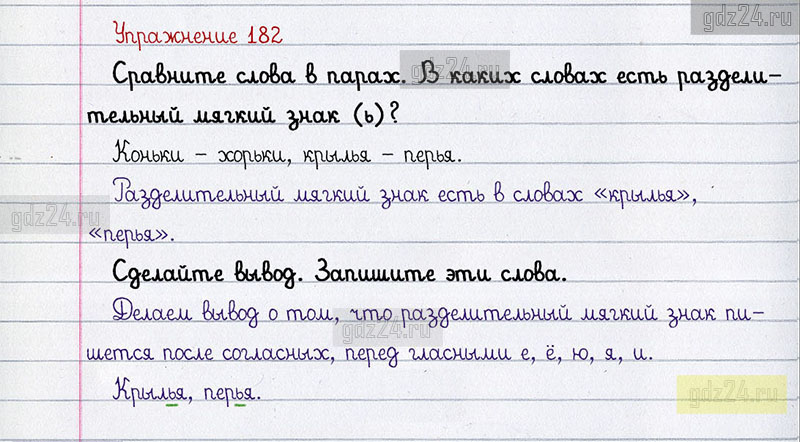 gdz24.ru
Упражнение 182
gdz24.ru
Сравните слова в парах. В каких словах есть раздели-
тельный мягкий знак (ь)?
Коньки - хорьки, крылья - перья.
Разделительный мягкий знак есть в словах «крылья»,
gdz24.ru
«перья».
Сделайте вывод. Запишите эти слова.
Делаем вывод о том, что разделительный мягкий знак пи-
gdz24.ru
шется после согласных, перед гласными е, ё, ю, я, и.
Крылья, перья.
gdz24.ru